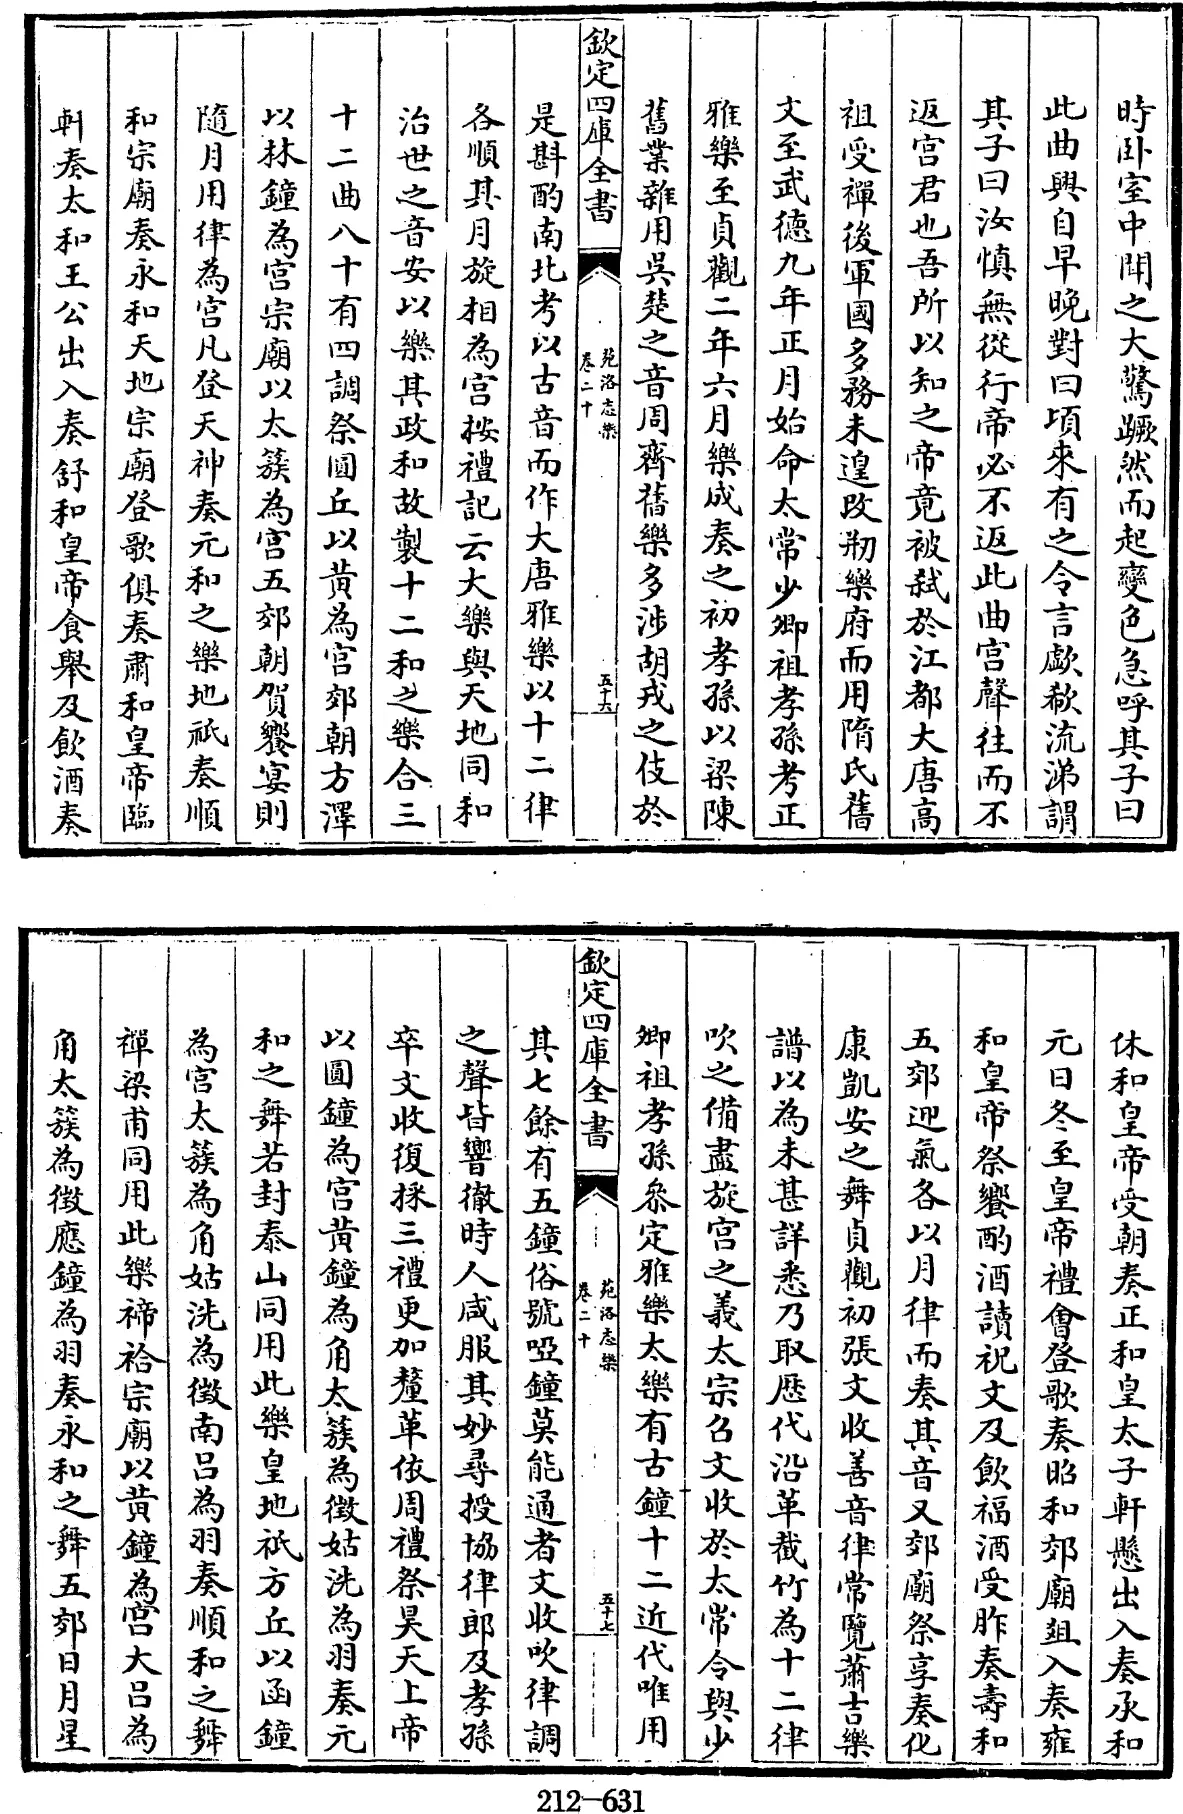 時卧室中聞之大驚蹶然而起變色急呼其子曰
此曲興自早晚對曰頃來有之令言歔欷流涕謂
其子曰汝慎無從行帝必不返此曲宫聲往而不
返宫君也吾所以知之帝竟被弑於江都大唐高
祖受禪後軍國多務未遑改刱樂府而用隋氏舊
文至武德九年正月始命太常少卿祖孝孫考正
雅樂至貞觀二年六月樂成奏之初孝孫以梁陳
舊業雜用吳楚之音周齊舊樂多涉胡戎之伎於
欽定四庫全書
苑洛志樂
卷二十
五十六
是斟酌南北考以古音而作大唐雅樂以十二律
各順其月旋相為宫按禮記云大樂與天地同和
治世之音安以樂其政和故製十二和之樂合三
十二曲八十有四調祭圓丘以黄為宫郊朝方澤
以林鐘為宫宗廟以太簇為宫五郊朝賀饗宴則
隨月用律為宫凡登天神奏元和之樂地祇奏順
和宗廟奏永和天地宗廟登歌俱奏肅和皇帝臨
軒奏太和王公出入奏舒和皇帝食舉及飲酒奏
休和皇帝受朝奏正和皇太子軒懸出入奏承和
元日冬至皇帝禮會登歌奏昭和郊廟俎入奏雍
和皇帝祭饗酌酒讀祝文及飲福酒受胙奏壽和
五郊迎氣各以月律而奏其音又郊廟祭享奏化
康凱安之舞貞觀初張文收善音律常覽蕭吉樂
譜以為未甚詳悉乃取歷代沿革截竹為十二律
吹之備盡旋宫之義太宗召文收於太常令與少
卿祖孝孫叅定雅樂太樂有古鐘十二近代唯用
欽定四庫全書
苑洛志樂
卷二十
五十七
其七餘有五鐘俗號啞鐘莫能通者文收吹律調
之聲皆響徹時人咸服其妙尋授協律郎及孝孫
卒文收復採三禮更加釐革依周禮祭昊天上帝
以圓鐘為宫黄鐘為角太簇為徴姑洗為羽奏元
和之舞若封泰山同用此樂皇地祇方丘以函鐘
為宫太簇為角姑洗為徴南呂為羽奏順和之舞
禪梁甫同用此樂禘祫宗廟以黄鐘為宫大呂為
角太簇為徴應鐘為羽奏永和之舞五郊日月星
212-631